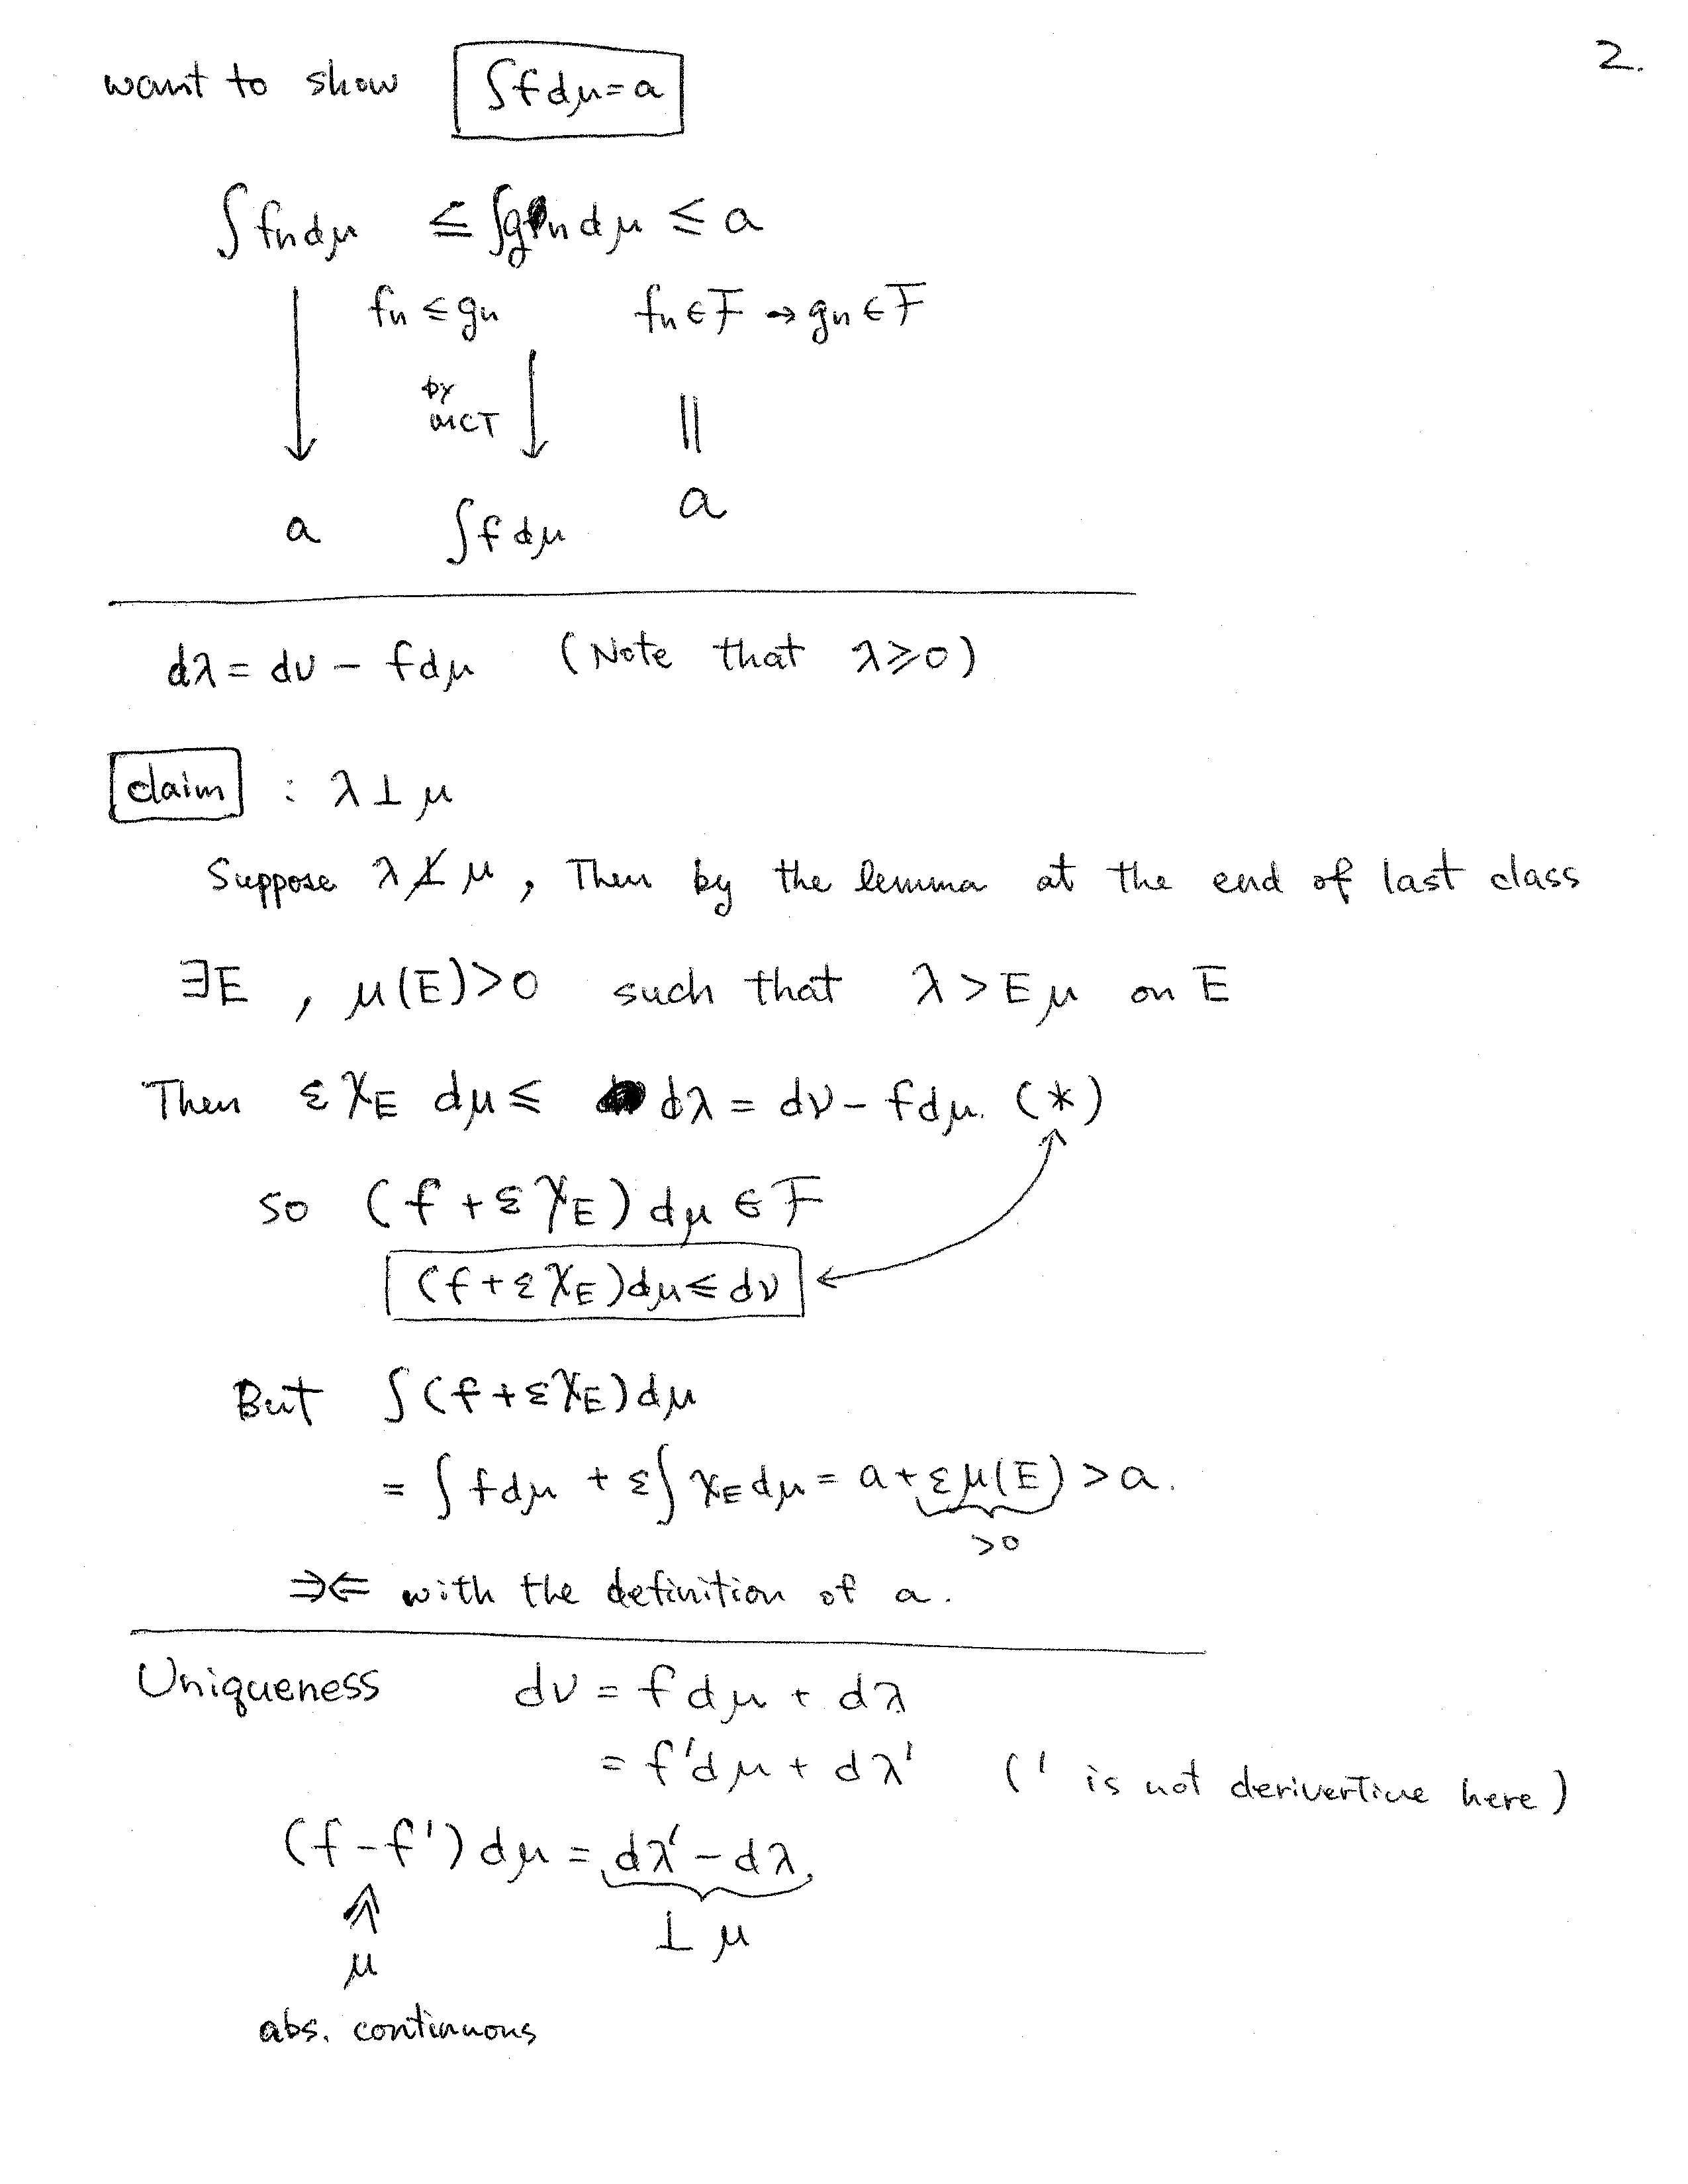 2.
want to show ∫fdμ=a
∫fndμ ≤ ∫gndμ ≤ a
fn ≤ gn fn∈F → gn∈F
↓ by ↓ ||
MCT
a ∫fdμ a
dλ = dν − fdμ (Note that λ≥0)
claim : λ⊥μ
Suppose λ⊥̸μ, Then by the lemma at the end of last class
∃E , μ(E)>0 such that λ>Eμ on E
Then εχE dμ ≤ dλ = dν − fdμ. (*)
so (f+εχE)dμ ∈ F
(f+εχE)dμ ≤ dν
But ∫(f+εχE)dμ
= ∫fdμ + ε∫χEdμ = a+εμ(E) > a.
>0
⇒⇐ with the definition of a.
Uniqueness dν = fdμ + dλ
= f'dμ + dλ' (' is not derivertive here)
(f−f')dμ = dλ'−dλ
⇑ ⊥ μ
μ
abs. continuous